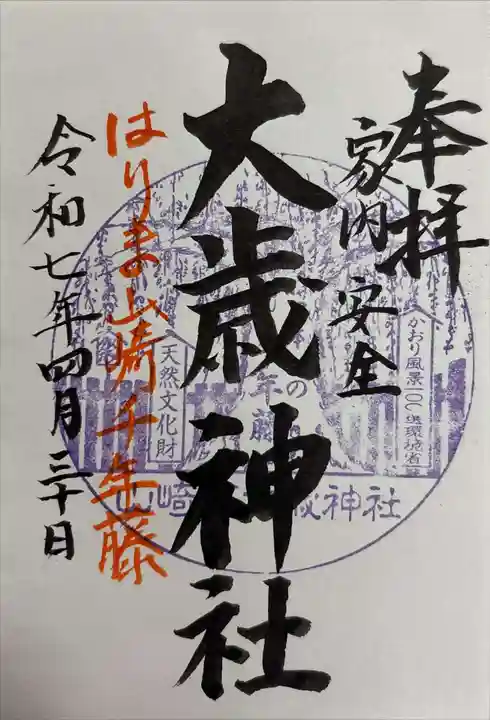 奉拝
家内安全
大歳神社
はりま山崎千年藤
令和七年四月三十日
かおり風景100選環境省
年の
藤
天然文化財
山崎 歳神社